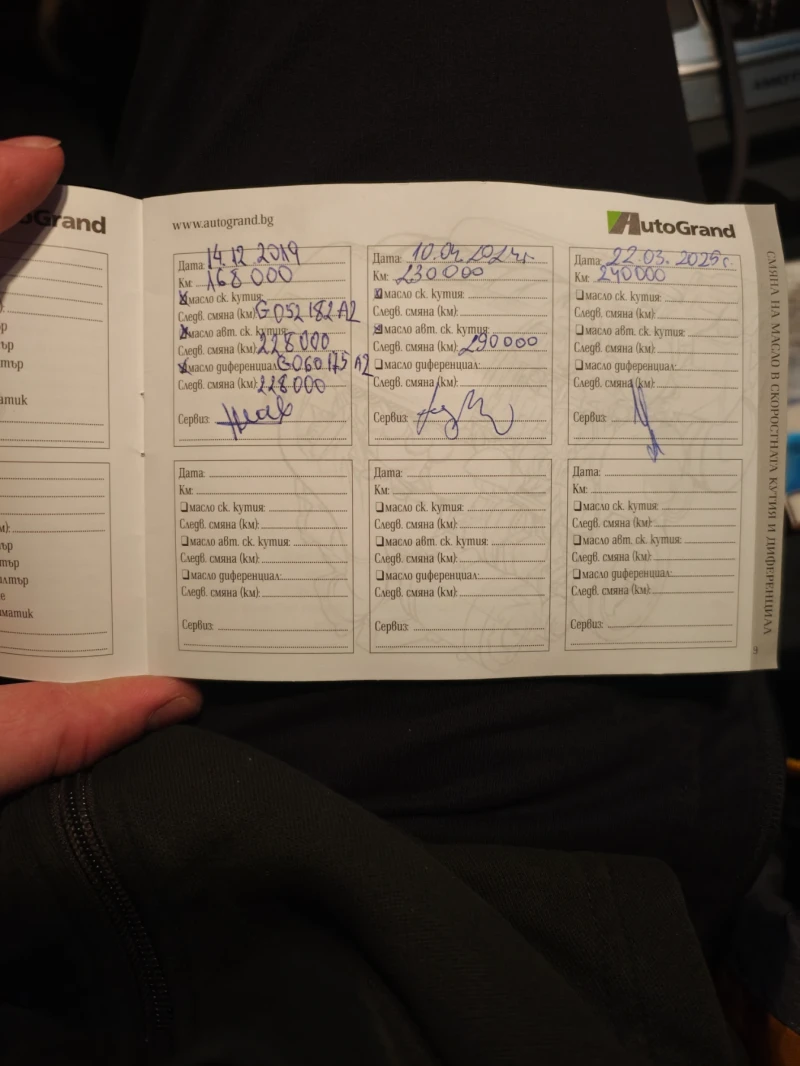 www.autogrand.bg
AutoGrand
Дата: 14.12.2019
Км: 168 000
масло ск. кутия:
Следв. смяна (км): G 052 182 A2
масло авт. ск. кутия:
Следв. смяна (км): 228 000
масло диференциал: G 060 175 A2
Следв. смяна (км): 228 000
Сервиз:
Дата: 10.04.2024г
Км: 230 000
масло ск. кутия:
Следв. смяна (км):
масло авт. ск. кутия:
Следв. смяна (км): 290 000
масло диференциал:
Следв. смяна (км):
Сервиз:
Дата: 22.03.2025г.
Км: 240000
масло ск. кутия:
Следв. смяна (км):
масло авт. ск. кутия:
Следв. смяна (км):
масло диференциал:
Следв. смяна (км):
Сервиз:
Дата:
Км:
масло ск. кутия:
Следв. смяна (км):
масло авт. ск. кутия:
Следв. смяна (км):
масло диференциал:
Следв. смяна (км):
Сервиз:
Дата:
Км:
масло ск. кутия:
Следв. смяна (км):
масло авт. ск. кутия:
Следв. смяна (км):
масло диференциал:
Следв. смяна (км):
Сервиз:
Дата:
Км:
масло ск. кутия:
Следв. смяна (км):
масло авт. ск. кутия:
Следв. смяна (км):
масло диференциал:
Следв. смяна (км):
Сервиз:
СМЯНА НА МАСЛО В СКОРОСТНАТА КУТИЯ И ДИФЕРЕНЦИАЛ
9